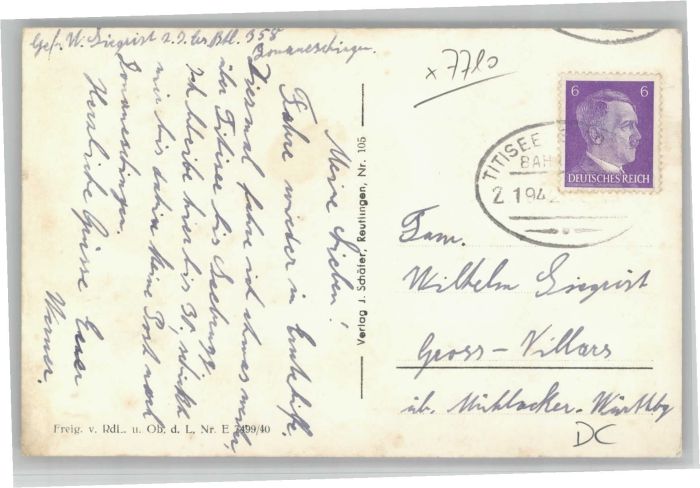 Gefr. W. Siegrist 2. J. Ers. Btl. 358
Donaueschingen.
Meine Lieben!
Fahre wieder in Ernthilfe.
Diesmal fahre ich etwas weiter,
über Titisee bis Seebrugg.
Ich bleibe hier bis 30, schickt
mir bis dahin keine Post nach
Donaueschingen.
Herzliche Grüsse Euer
Werner.
Freig. v. RdL. u. Ob. d. L. Nr. E 3499/40
Verlag J. Schäfer, Reutlingen, Nr. 105
x 7710
6 6
DEUTSCHES REICH
TITISEE
BAH
2 1942
Fam.
Wilhelm Siegrist
Gross-Villars
üb. Mühlacker-Württbg
DC